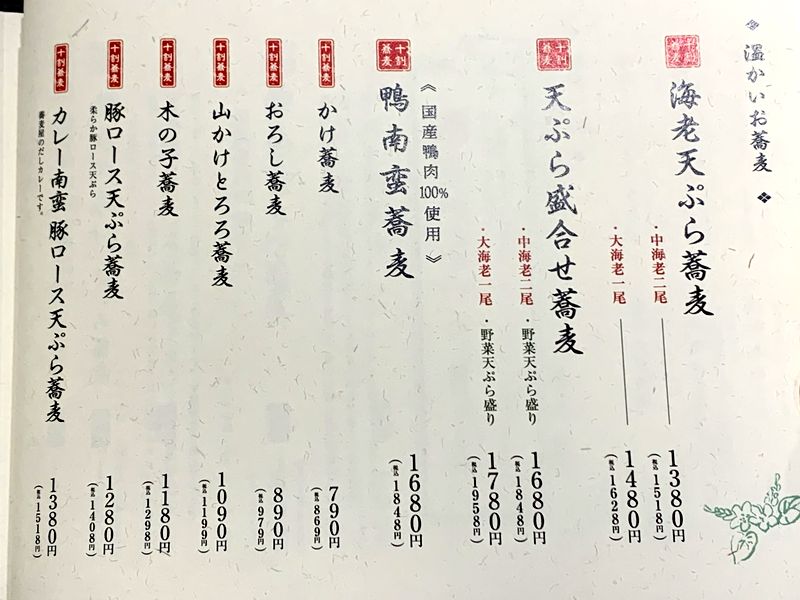 ❖ 温かいお蕎麦 ❖
十割蕎麦
海老天ぷら蕎麦
・中海老二尾
1380円
(税込1518円)
・大海老一尾
1480円
(税込1628円)
十割蕎麦
天ぷら盛合せ蕎麦
・中海老二尾・野菜天ぷら盛り
1680円
(税込1848円)
・大海老一尾・野菜天ぷら盛り
1780円
(税込1958円)
《国産鴨肉100%使用》
十割蕎麦
鴨南蛮蕎麦
1680円
(税込1848円)
十割蕎麦
かけ蕎麦
790円
(税込869円)
十割蕎麦
おろし蕎麦
890円
(税込979円)
十割蕎麦
山かけとろろ蕎麦
1090円
(税込1199円)
十割蕎麦
木の子蕎麦
1180円
(税込1298円)
十割蕎麦
豚ロース天ぷら蕎麦
柔らか豚ロース天ぷら
1280円
(税込1408円)
十割蕎麦
カレー南蛮 豚ロース天ぷら蕎麦
蕎麦屋のだしカレーです。
1380円
(税込1518円)